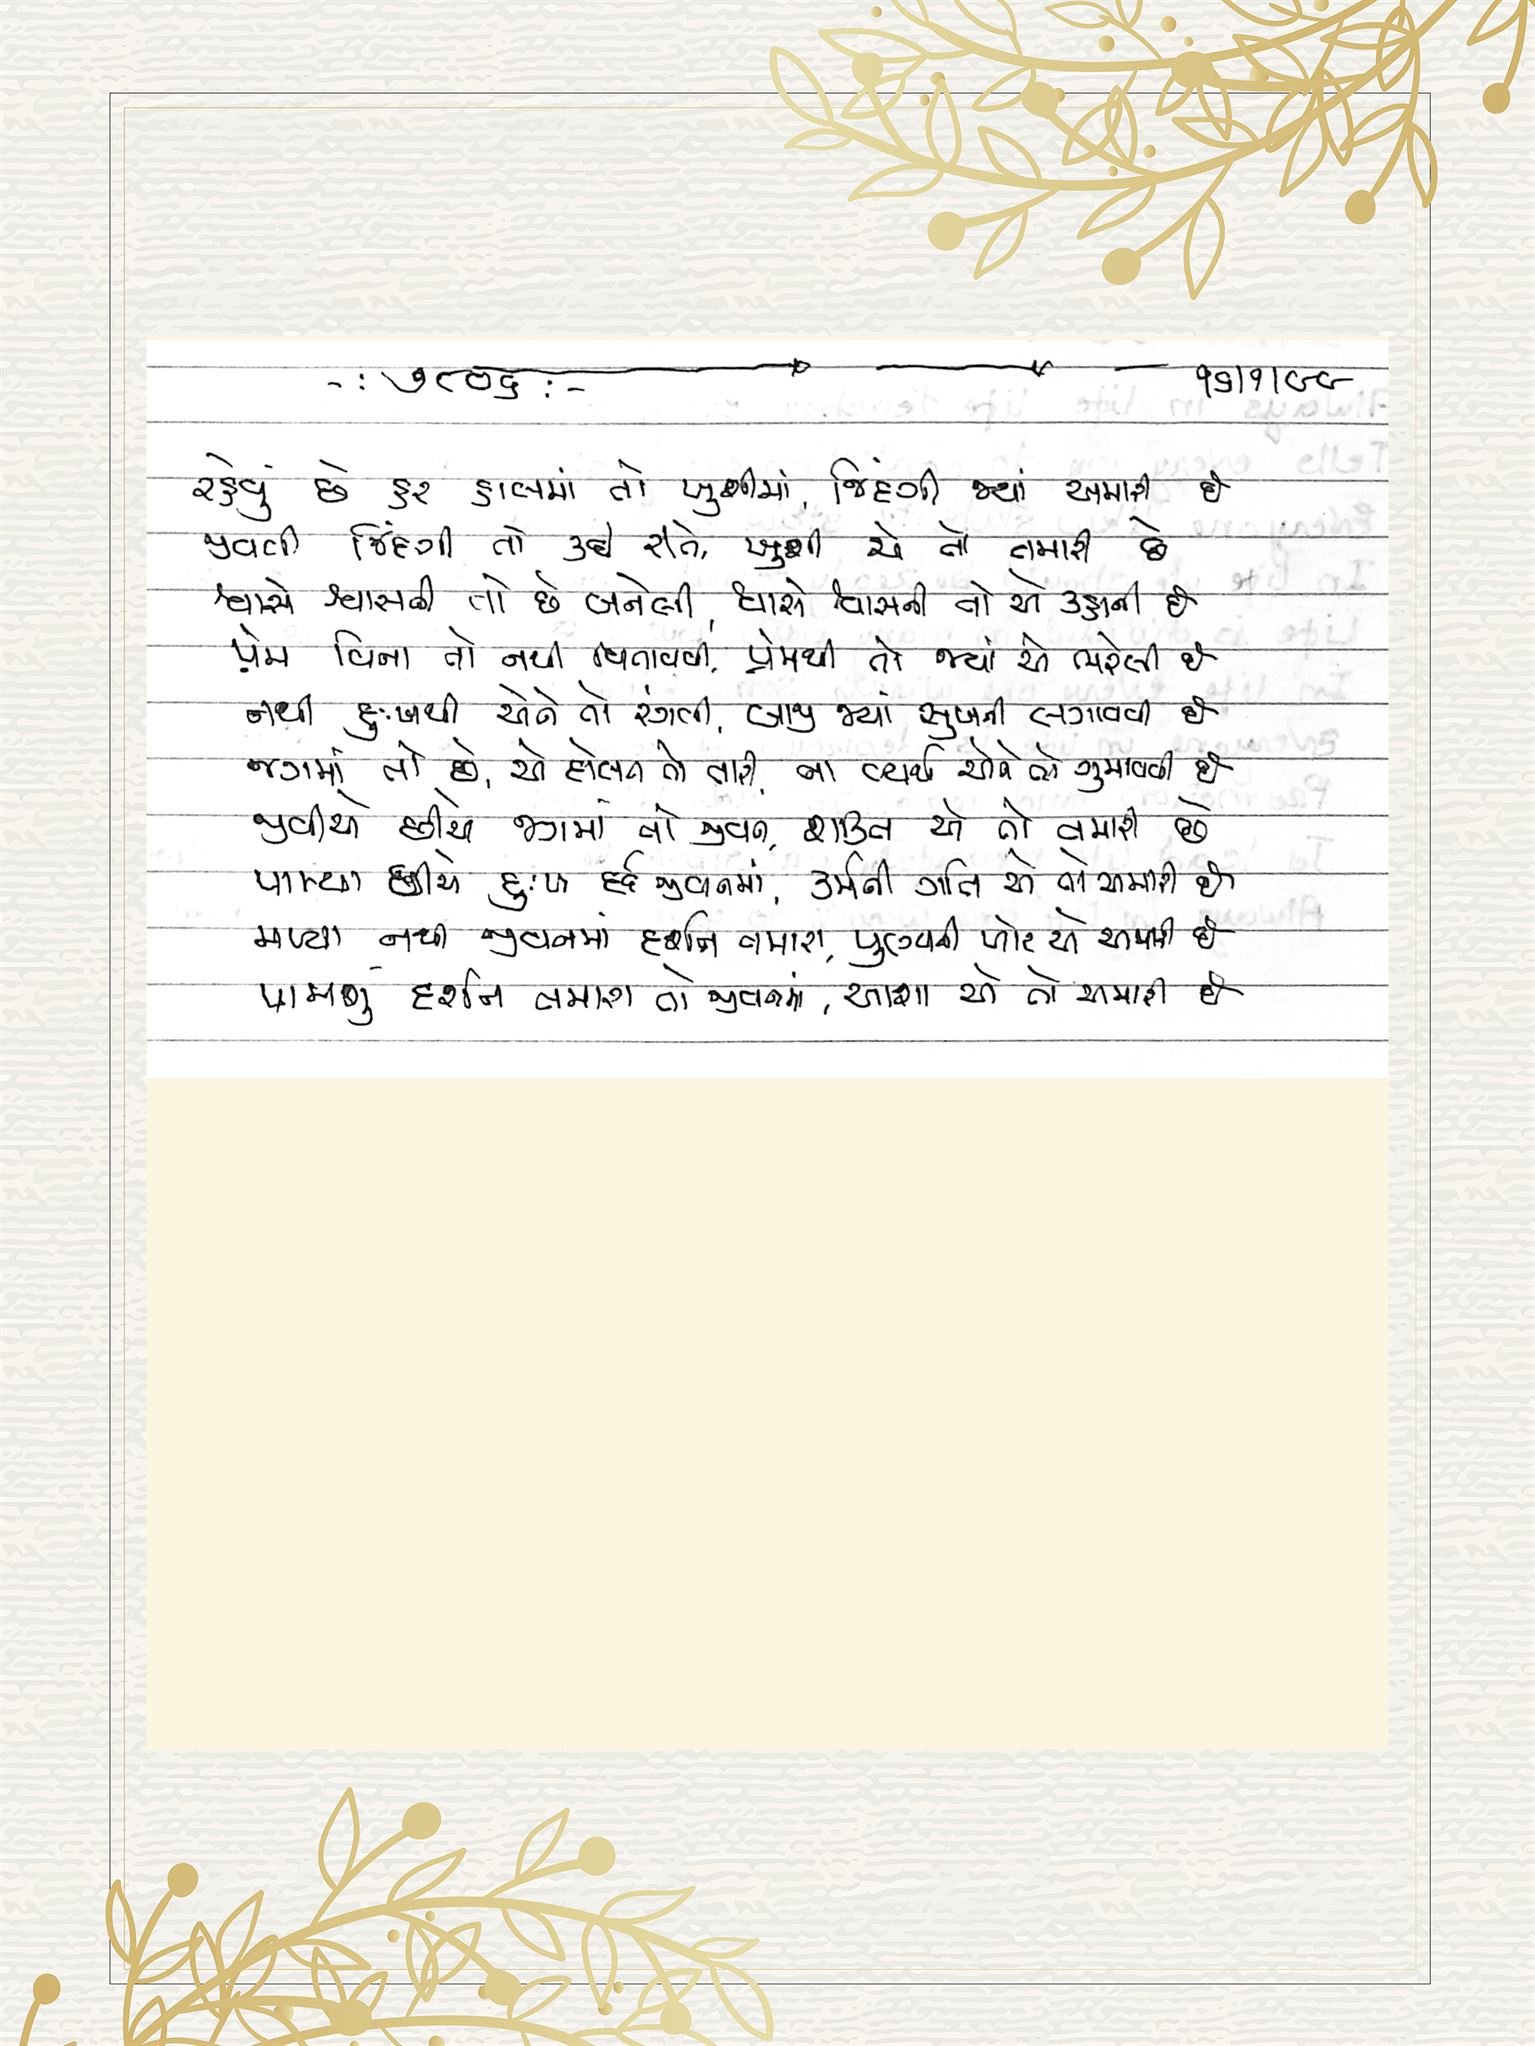 -: ૭૮૭૬ :- ૧૬/૧/૯૯
રહેવું છે હર હાલમાં તો ખુશીમાં, જિંદગી જ્યાં અમારી છે
જીવવી જિંદગી તો કઈ રીતે, ખુશી એ તો તમારી છે
શ્વાસે શ્વાસની તો છે બનેલી, શ્વાસે શ્વાસની તો એ કહાની છે
પ્રેમ વિના તો નથી વિતાવવી, પ્રેમથી તો જ્યાં એ ભરેલી છે
નથી દુઃખથી એને તો રંગવી, બાજી જ્યાં સુખની લગાવવી છે
જગમાં તો છે, એ દોલત તો તારી, ના વ્યર્થ એને તો ગુમાવવી છે
જીવીએ છીએ જગમાં તો જીવન, શક્તિ એ તો તમારી છે
પામ્યા છીએ દુઃખ દર્દ જીવનમાં, કર્મની ગતિ એ તો અમારી છે
મળ્યા નથી જીવનમાં દર્શન તમારા, પુણ્યની ખોટ એ અમારી છે
પામશું દર્શન તમારા તો જીવનમાં, આશા એ તો અમારી છે